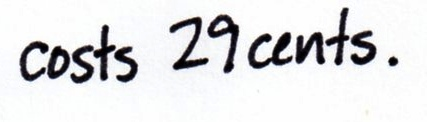 costs 29 cents.